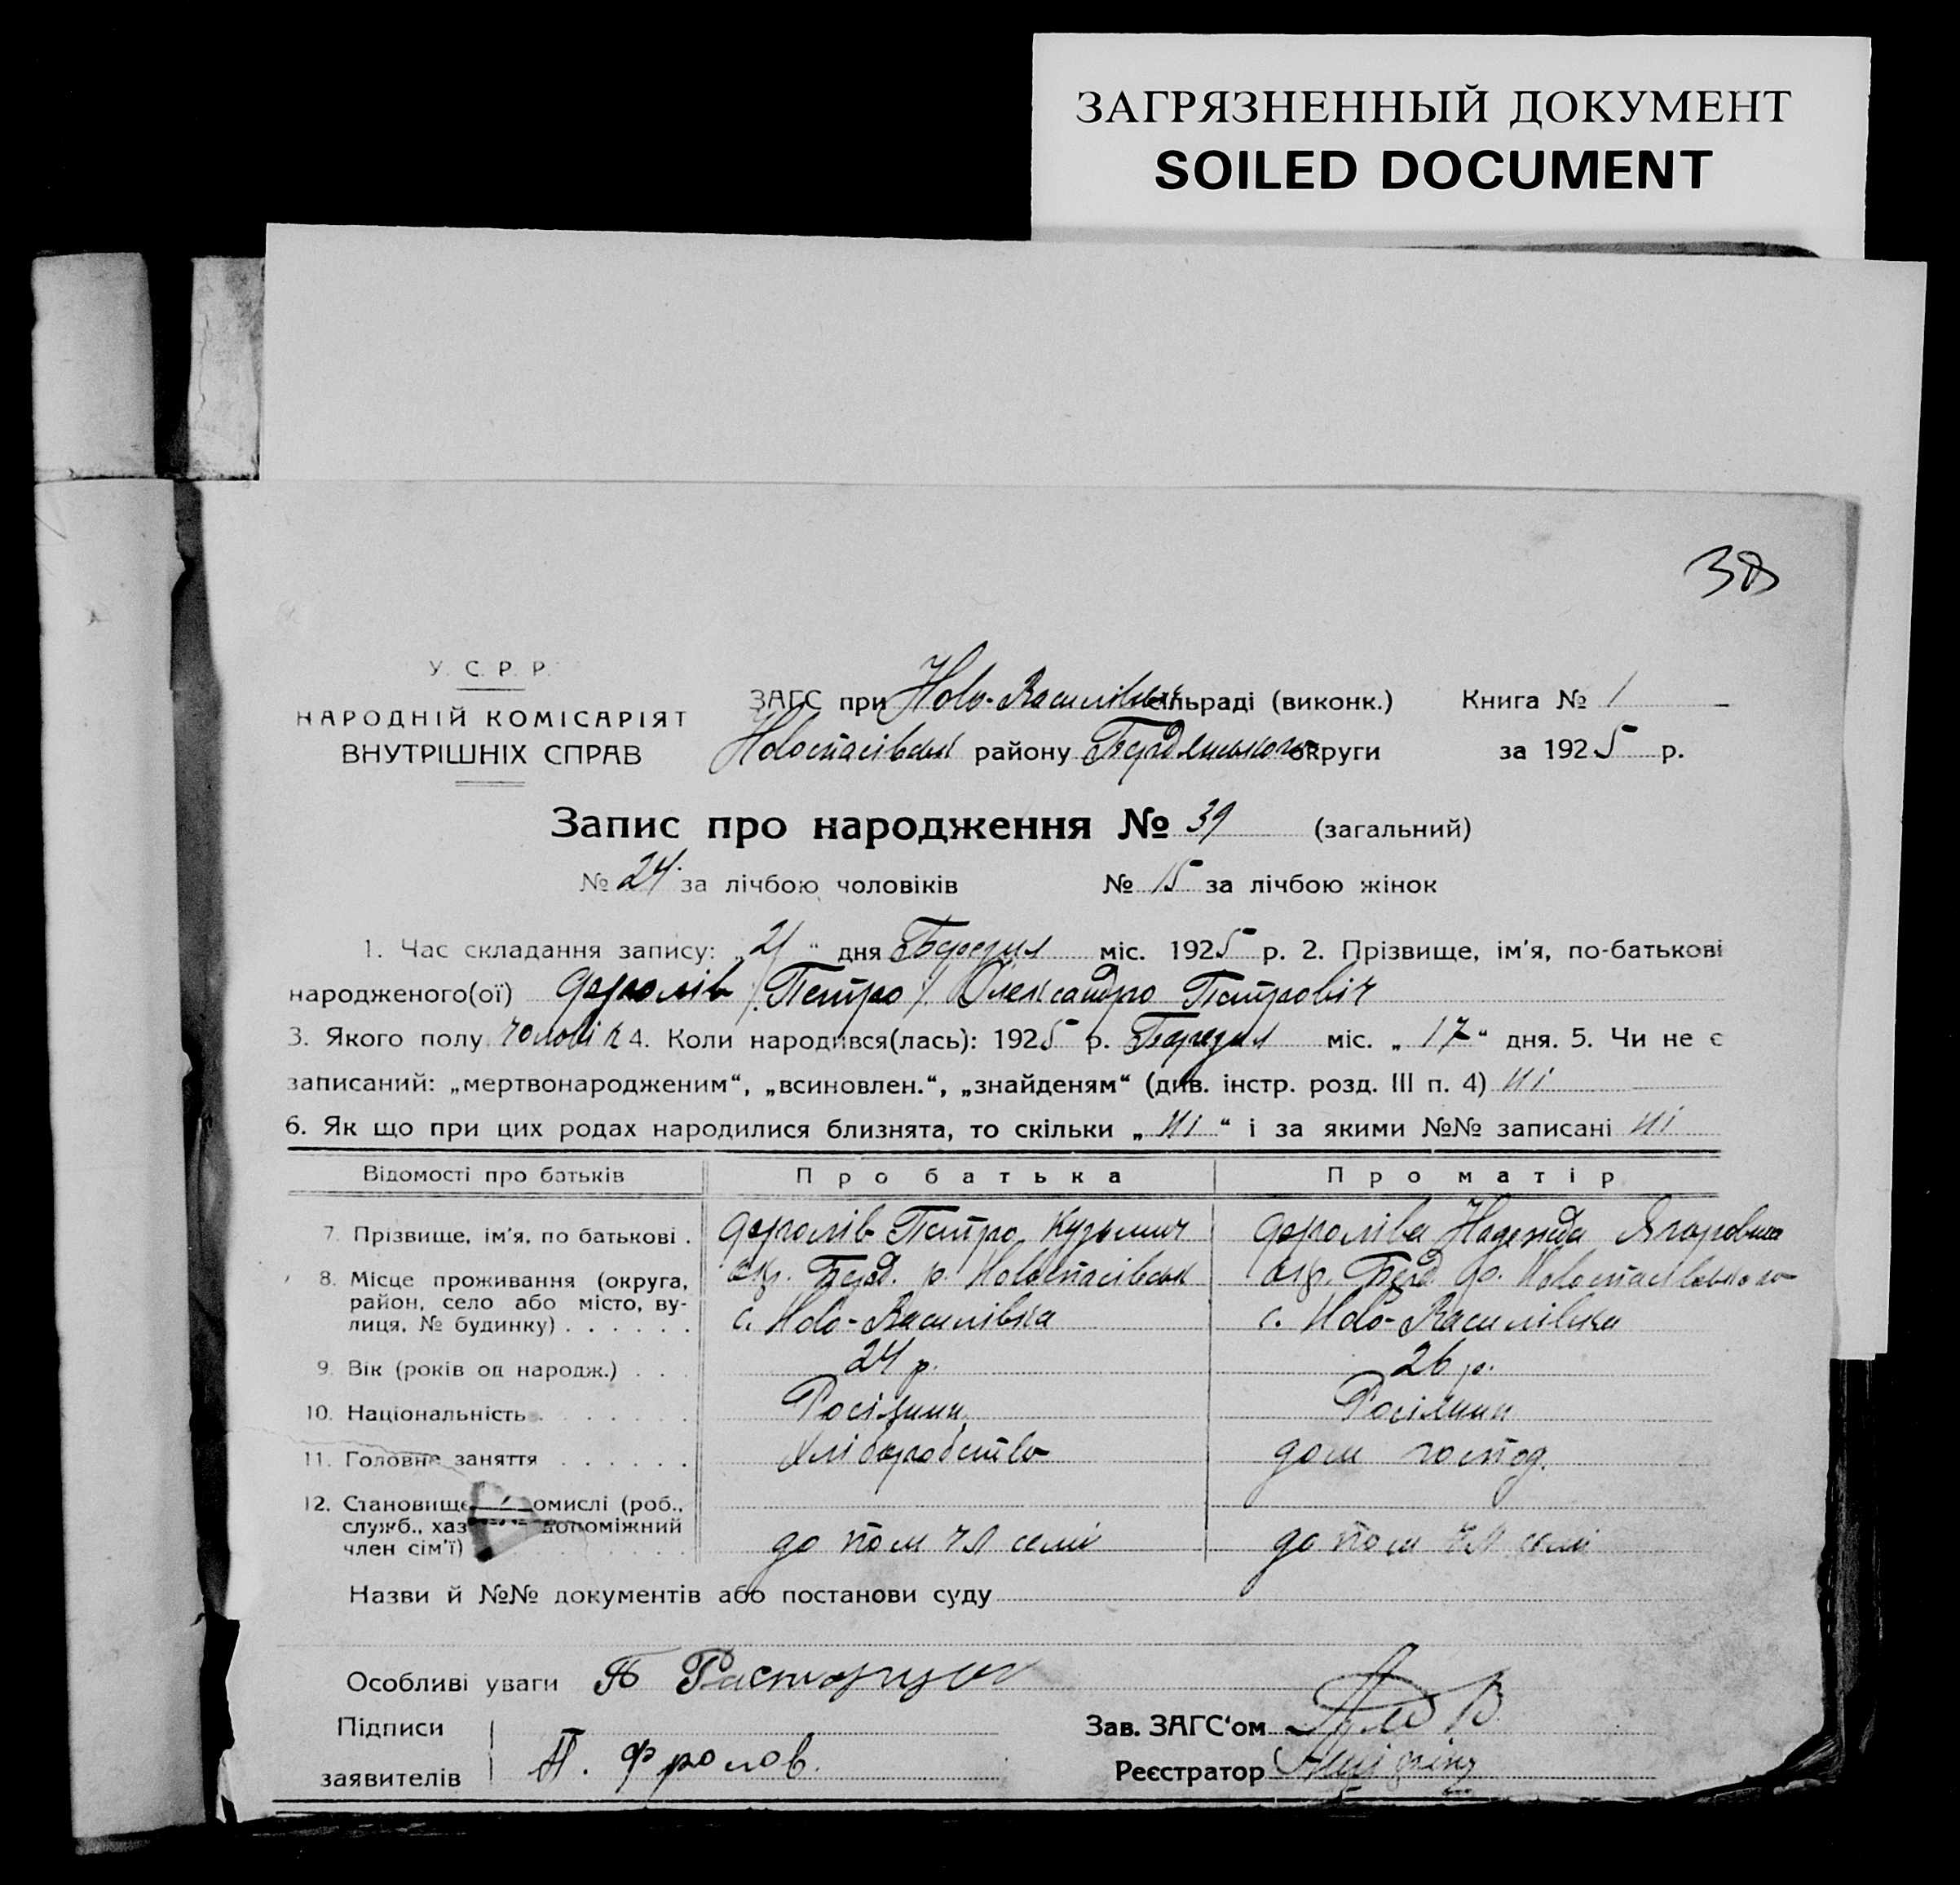 ЗАГРЯЗНЕННЫЙ ДОКУМЕНТ
SOILED DOCUMENT
38
У. С. Р. Р.
НАРОДНІЙ КОМІСАРІЯТ
ВНУТРІШНІХ СПРАВ
ЗАГС при Ново-Василівськ сільраді (виконк.) Книга № 1
Новоспасівськ району Бердянського округи за 1925 р.
Запис про народження № 39 (загальний)
№ 24 за лічбою чоловіків № 15 за лічбою жінок
1. Час складання запису: „21“ дня Березня міс. 1925 р. 2. Прізвище, ім'я, по-батькові
народженого(ої) Фролів /Петро/ Олександро Петровіч
3. Якого полу чоловік 4. Коли народився(лась): 1925 р. Березня міс. „17“ дня. 5. Чи не є
записаний: „мертвонародженим“, „всиновлен.“, „знайденям“ (див. інстр. розд. III п. 4) ні
6. Як що при цих родах народилися близнята, то скільки „ні“ і за якими №№ записані ні
Відомості про батьків Про батька Про матір
7. Прізвище, ім'я, по батькові . Фролів Петро Кузьмич Фроліва Надежда Ягоровна
8. Місце проживання (округа, район, село або місто, вулиця, № будинку) . . . . . . окр. Берд. р. Новоспасівськ окр. Берд. р. Новоспасівського
с. Ново-Василівка с. Ново-Василівка
9. Вік (років од народж.) . . . 24 р. 26 р.
10. Національність . . . . . . . Росіянин Росіянин
11. Головне заняття . . . . . . Хліборобство дом господ.
12. Становище омислі (роб.,
служб., хаз допоміжний
член сім'ї) до пом чл семі до пом чл семі
Назви й №№ документів або постанови суду
Особливі уваги П
Підписи
заявителів П. Фролов.
Зав. ЗАГС'ом
Реєстратор